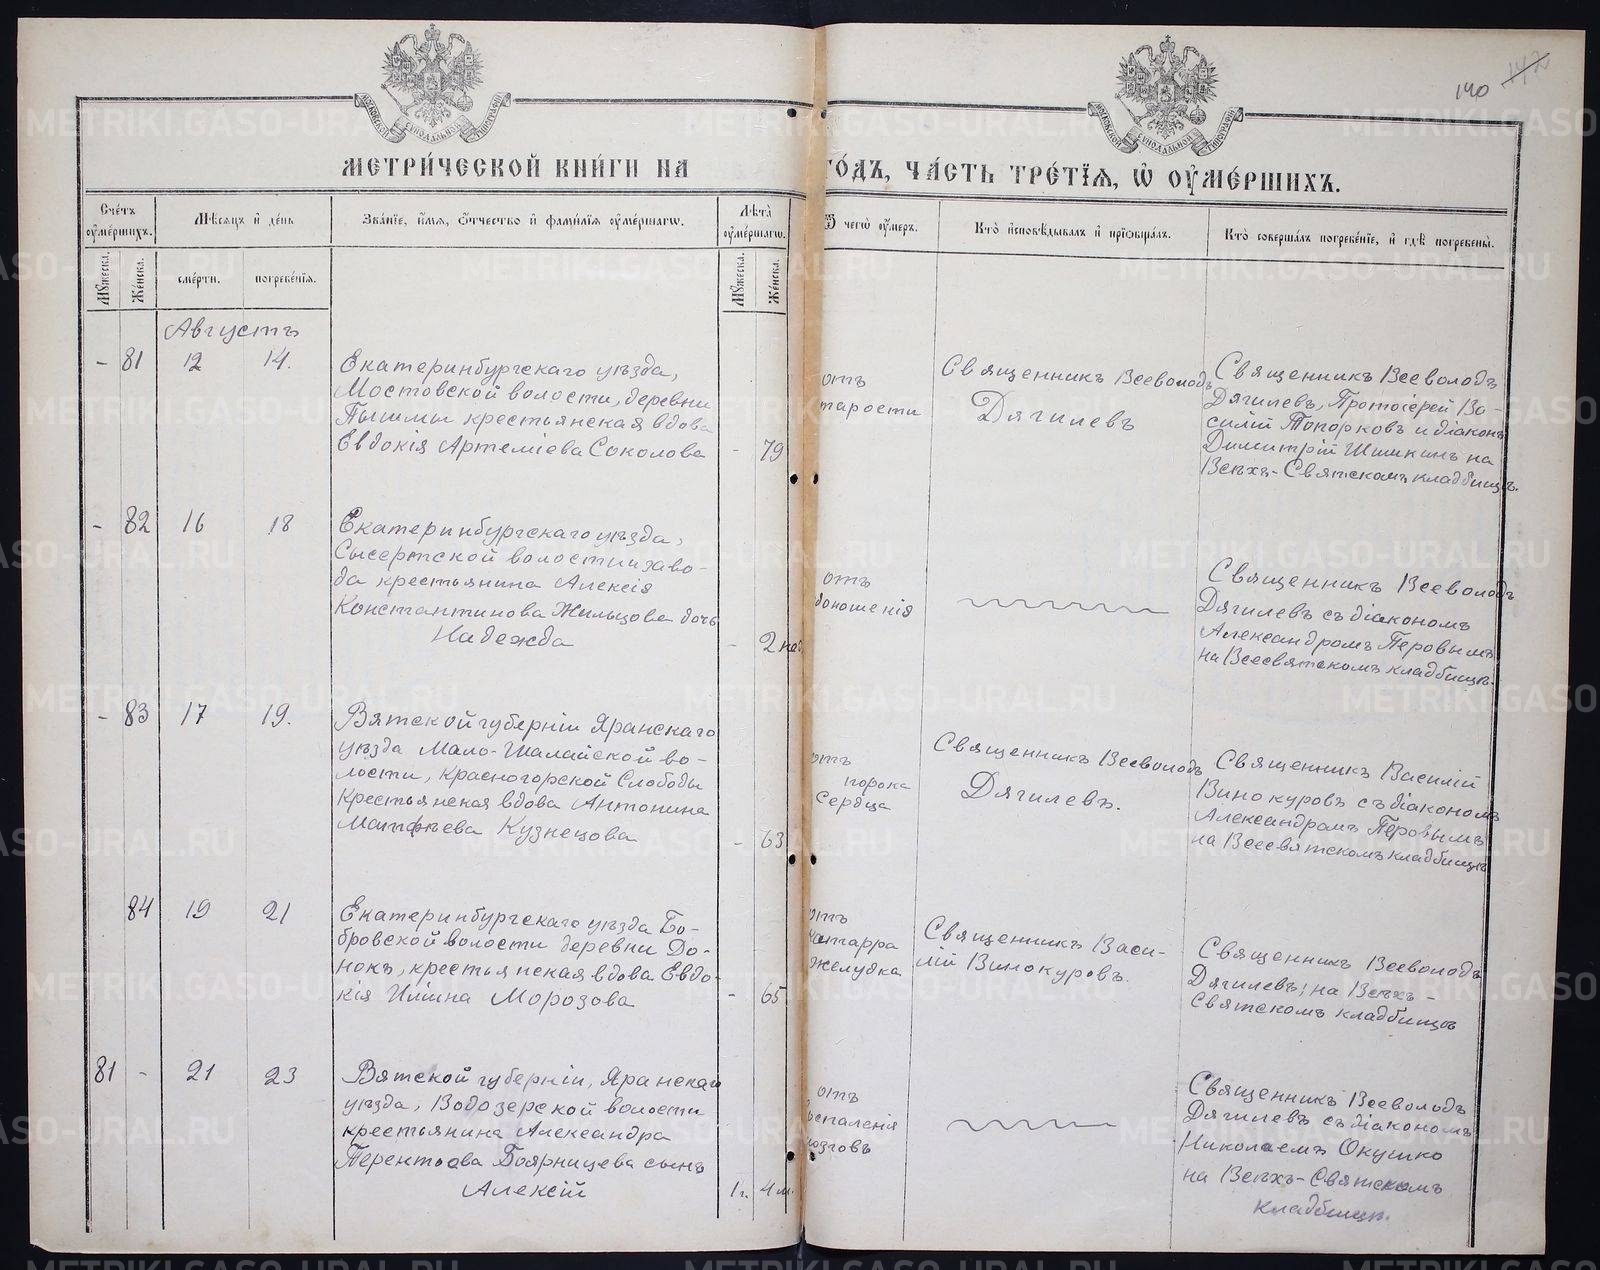 140 142
МОСКОВСКОЙ СУНОДАЛЬНОЙ ТИПОГРАФІИ
МОСКОВСКОЙ СУНОДАЛЬНОЙ ТИПОГРАФІИ
МЕТРИ́ЧЕСКОЙ КНИ́ГИ НА ГО́ДЪ, ЧА́СТЬ ТРЕ́ТІЯ, Ѿ ОУМЕ́РШИХЪ.
Сче́тъ оуме́ршихъ.
Мѣ́сяцъ и де́нь
Зва́ніе, и́мя, ѻ́тчество и фами́лія оуме́ршагѡ.
Лѣ́та оуме́ршагѡ.
Ѿ чегѡ̀ оу́меръ.
Кто̀ исповѣ́дывалъ и пріѡбща́лъ.
Кто̀ соверша́лъ погребе́ніе, и гдѣ̀ погребены̀.
Му́жеска.
Же́нска.
сме́рти.
погребе́нія.
Му́жеска.
Же́нска.
Августъ
- 81 12 14.
Екатеринбургскаго уѣзда,
Мостовской волости, деревни
Пышмы крестьянская вдова
Евдокія Артеміева Соколова
- 79
отъ
тарости
Священникъ Всеволодъ
Дягилевъ
Священникъ Всеволодъ
Дягилевъ, Протоіерей Ва-
силій Топорковъ и діаконъ
Димитрій Шишкинъ на
Всѣхъ-Святскомъ кладбищѣ.
- 82 16 18
Екатеринбургскаго уѣзда,
Сысертской волости и заво-
да крестьянина Алексія
Константинова Жильцова дочь
Надежда
- 2 не
отъ
доношенія
Священникъ Всеволодъ
Дягилевъ съ діакономъ
Александромъ Перовымъ
на Всесвятскомъ кладбищѣ.
- 83 17 19.
Вятской губерніи Яранскаго
уѣзда Мало-Шалайской во-
лости, Красногорской Слободы
крестьянская вдова Антонина
Матфѣева Кузнецова
- 63
отъ
порока
Сердца
Священникъ Всеволодъ
Дягилевъ.
Священникъ Василій
Винокуровъ съ діакономъ
Александромъ Перовымъ
на Всесвятскомъ кладбищѣ
84 19 21
Екатеринбургскаго уѣзда Бо-
бровской волости деревни До-
нокъ, крестьянская вдова Евдо-
кія Иліина Морозова
- 65
отъ
катарра
желудка
Священникъ Васи-
лій Винокуровъ.
Священникъ Всеволодъ
Дягилевъ; на Всѣхъ-
Святскомъ кладбищѣ
81 - 21 23
Вятской губерніи, Яранскаго
уѣзда, Водозерской волости
крестьянина Александра
Терентьева Бояринцева сынъ
Алексій
1 г. 4 м.
отъ
оспаленія
мозговъ
Священникъ Всеволодъ
Дягилевъ съ діакономъ
Николаемъ Окушко
на Всѣхъ-Святскомъ
кладбищѣ.
METRIKI.GASO-URAL.RU